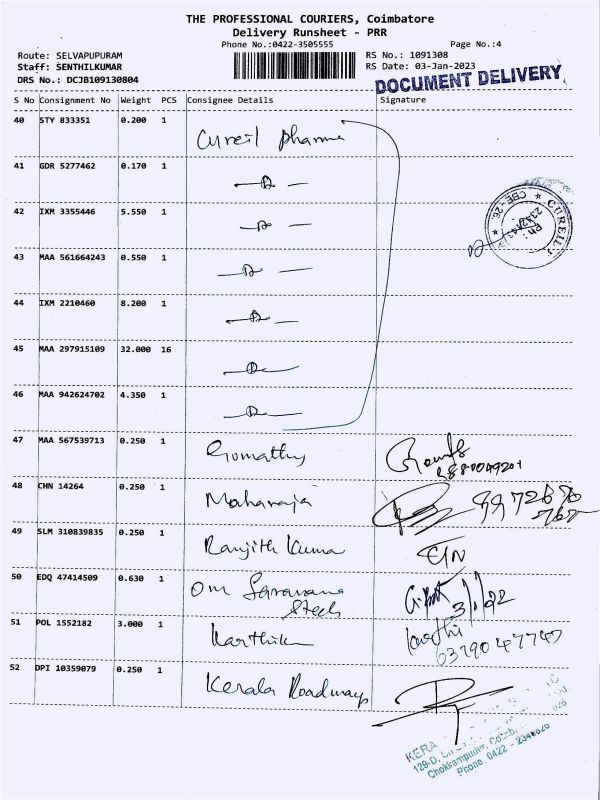 THE PROFESSIONAL COURIERS, Coimbatore
Delivery Runsheet - PRR
Phone No.:0422-3505555 Page No.:4
Route: SELVAPUPURAM RS No.: 1091308
Staff: SENTHILKUMAR RS Date: 03-Jan-2023
DRS No.: DCJB109130804
DOCUMENT DELIVERY
S No Consignment No Weight PCS Consignee Details Signature
40 STY 833351 0.200 1 Cureil pharma
41 GDR 5277462 0.170 1
42 IXM 3355446 5.550 1
43 MAA 561664243 0.550 1
44 IXM 2210460 8.200 1
45 MAA 297915109 32.000 16
46 MAA 942624702 4.350 1
CUREIL
CBE-26.
Ph :
47 MAA 567539713 0.250 1 Gomathy
48 CHN 14264 0.250 1 Maharaja
49 SLM 310839835 0.250 1 Ranjith Kuma
50 EDQ 47414509 0.630 1 Om Saravana
Steels
51 POL 1552182 3.000 1 Karthik Karthi
6379047747
52 DPI 10359079 0.250 1 Kerala Roadways
KERA
129-D,
Chokkampudur, Coimb
Phone: 0422 -